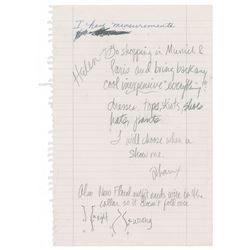 I have measurements
Helen
Do shopping in Munich &
Paris and bring back any
cool inexpensive
dresses, tops, skirts, shoes
hats, pants
I will choose when u
show me.
Also New Floral outfit needs wire in the
collar so it doesn't fold over
right
wrong